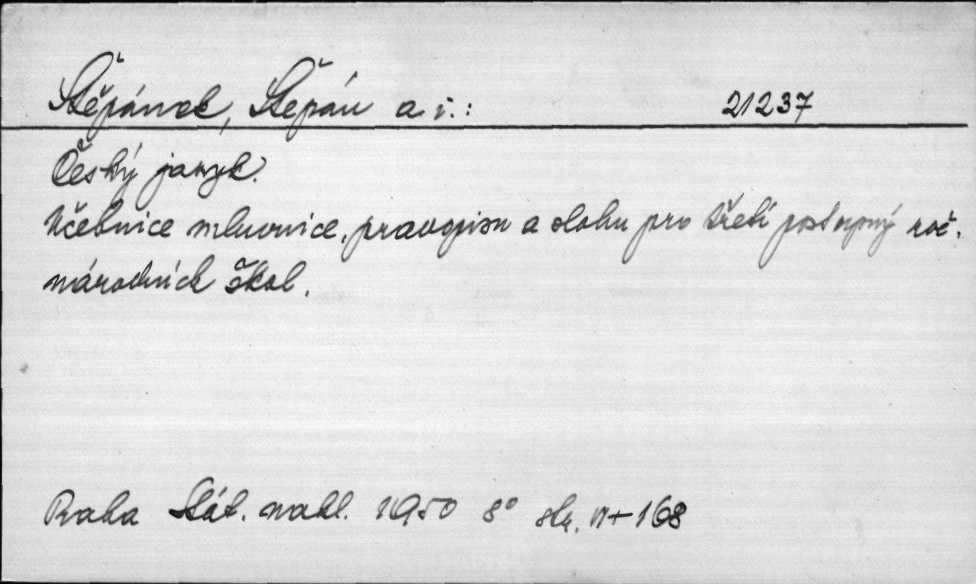 Štěpánek, Štěpán a i.: 21237
Český jazyk.
Učebnice mluvnice, pravopisu a slohu pro třetí postupný roč.
národních škol.
Praha Stát. nakl. 1950 8° str. VI+168